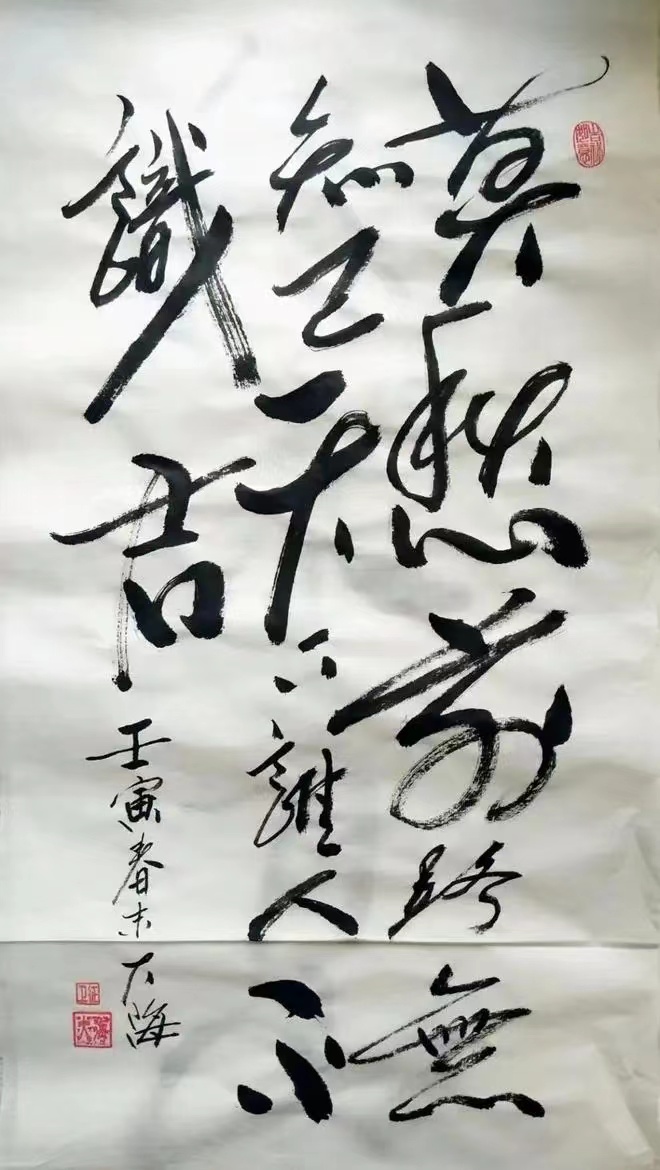 莫愁前路無
知己天下誰人不
識君
壬寅春末大海